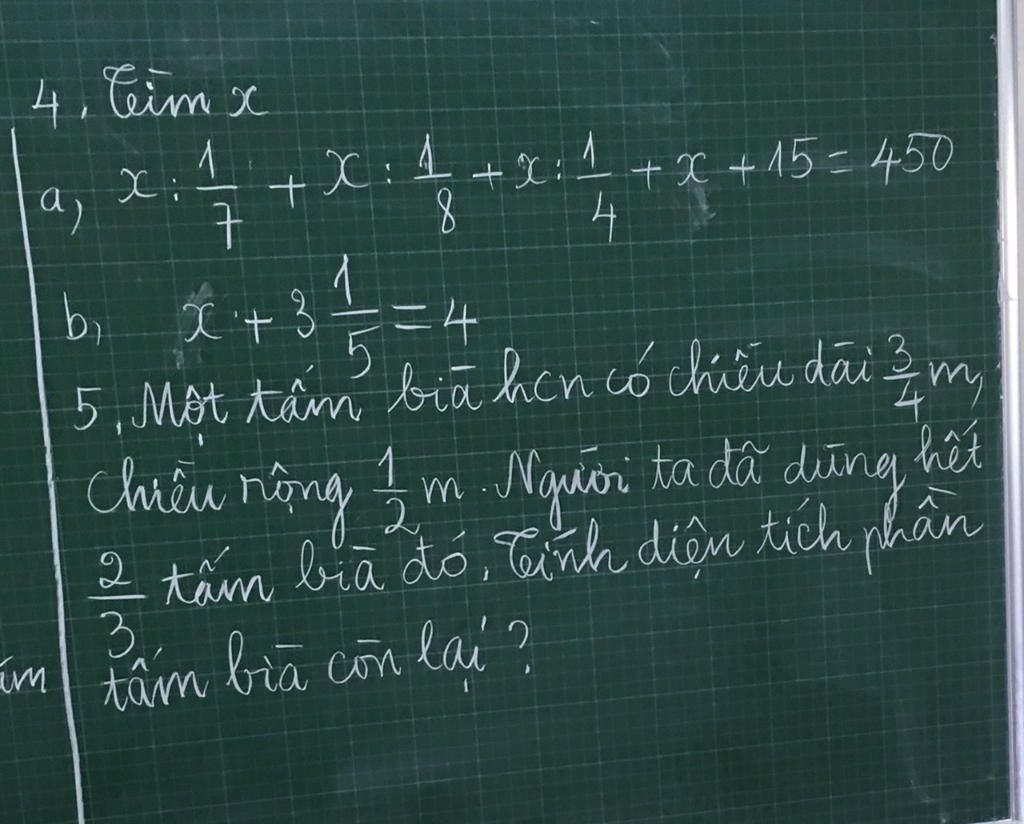 4, Tìm x
a, x : 1/7 + x : 1/8 + x : 1/4 + x + 15 = 450
b, x + 3 1/5 = 4
5, Một tấm bìa hcn có chiều dài 3/4 m,
chiều rộng 1/2 m. Người ta đã dùng hết
2/3 tấm bìa đó, Tính diện tích phần
tấm bìa còn lại ?